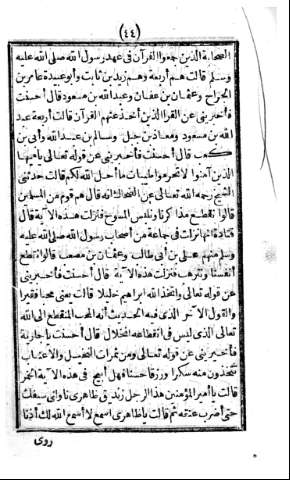 (٤٤)
الصحابة الذين جمعوا القرآن فى عهد رسول الله صلى الله عليه
وسلم قالت هم أربعة وهم زيد بن ثابت وأبو عبيدة عامر بن
الجراح وعثمان بن عفان وعبد الله بن مسعود قال أحسنت
فأخبرينى عن القراء الذين أخذ عنهم القرآن قالت أربعة عبد
الله بن مسعود ومعاذ بن جبل وسالم بن عبد الله وأبى بن
كعب قال أحسنت فأخبرينى عن قوله تعالى يا أيها
الذين آمنوا لا تحرموا طيبات ما أحل الله لكم قالت حدثنى
الشيخ رحمه الله تعالى عن الضحاك انه قال هم قوم من المسلمين
قالوا نقطع مذاكرنا ونلبس المسوح فنزلت هذه الآية وقال
قتادة انها نزلت فى جماعة من أصحاب رسول الله صلى الله عليه
وسلم منهم على بن أبى طالب وعثمان بن مصعب قالوا نقطع
أنفسنا ونترهب فنزلت هذه الآية قال أحسنت فأخبرينى
عن قوله تعالى واتخذ الله ابراهيم خليلا قالت يعنى محبا فقيرا
والقول الآخر الذى فيه الحديث أنه المحب المنقطع الى الله
تعالى الذى ليس فى انقطاعه اختلال قال أحسنت يا جارية
فأخبرينى عن قوله تعالى ومن ثمرات النخيل والاعناب
تتخذون منه سكرا ورزقا حسنا فهل أبيح فى هذه الآية الخمر
قالت يا أمير المؤمنين هذا الرجل زنديق ظاهرى ناولنى سيفك
حتى أضرب عنقه ثم قالت يا ظاهرى اسمع لا أسمع الله لك أذنا
روى